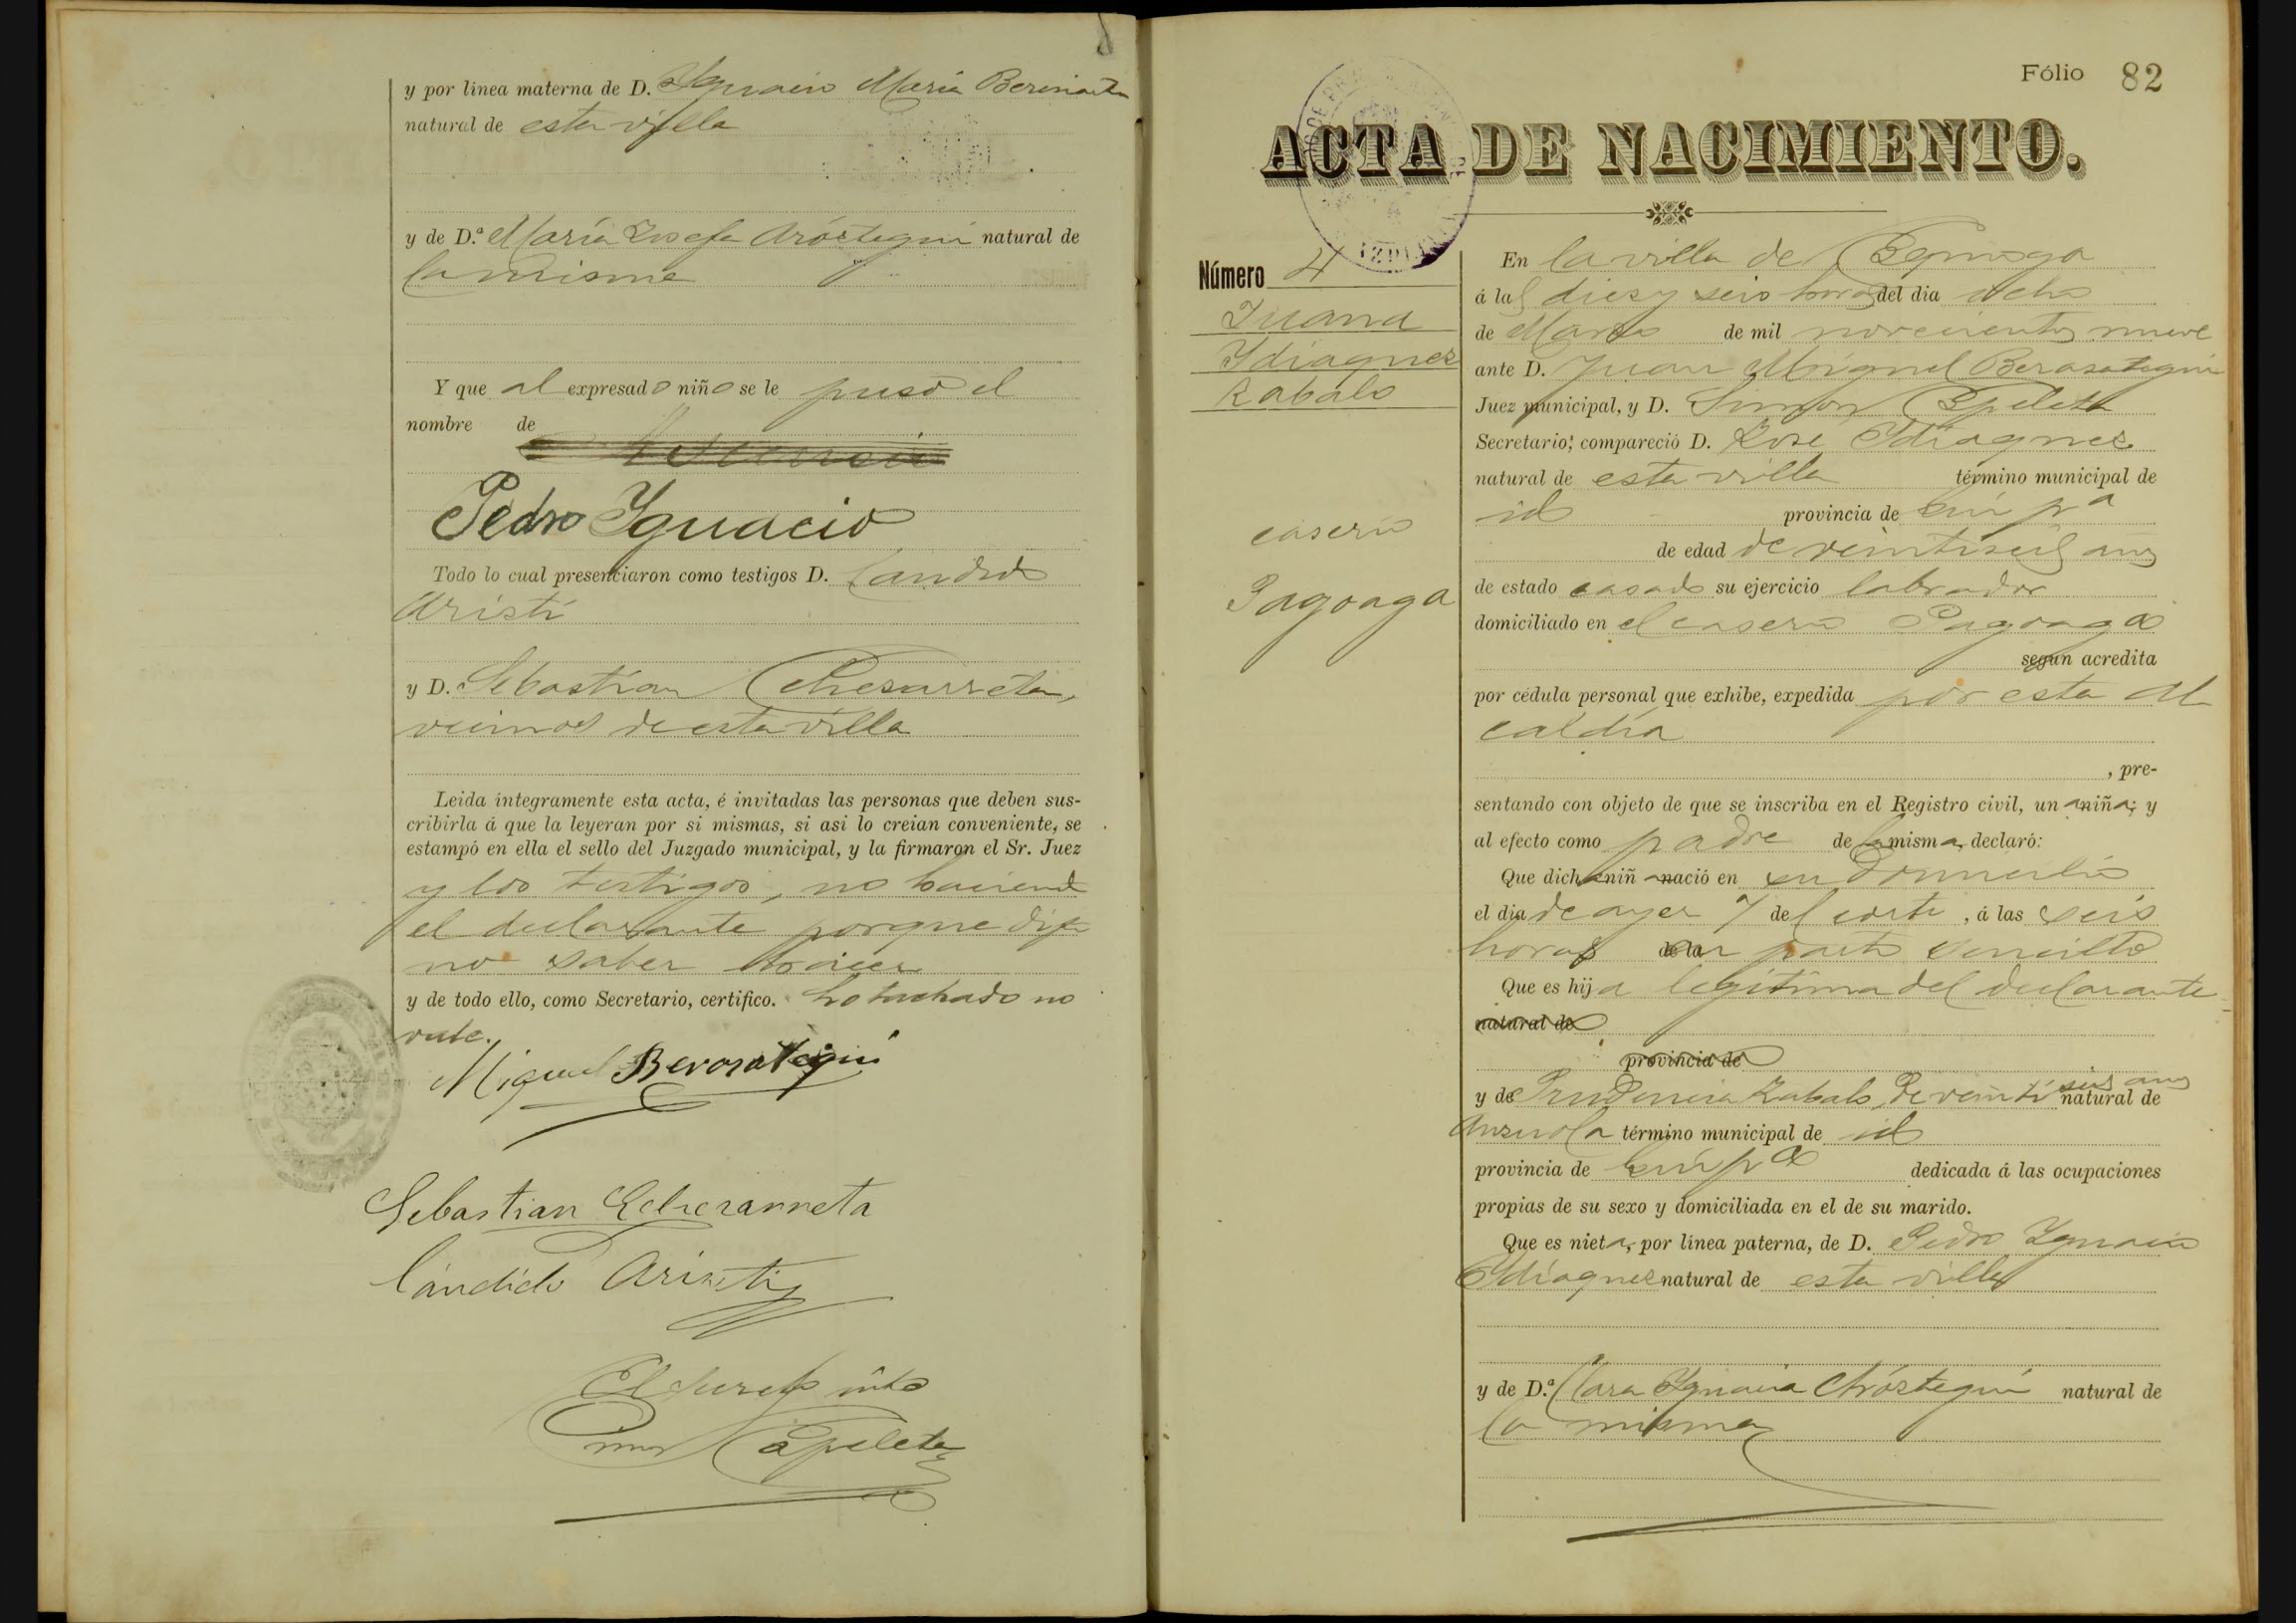 y por linea materna de D. Ygnacio María Beriniartu
natural de esta villa
y de D.ª María Josefa Aróstegui natural de
la misma
Y que al expresado niño se le puso el
nombre de
Pedro Ygnacio
Todo lo cual presenciaron como testigos D. Candido
Aristi
y D. Sebastian Echezarreta,
vecinos de esta villa
Leida íntegramente esta acta, é invitadas las personas que deben sus-
cribirla á que la leyeran por si mismas, si asi lo creian conveniente, se
estampó en ella el sello del Juzgado municipal, y la firmaron el Sr. Juez
y los testigos, no haciendo
el declarante porque dijo
no saber hacer
y de todo ello, como Secretario, certifico. Lo tachado no
vale.
Miguel Berasategui
Sebastian Echezarreta
Cándido Aristi
El Secret
Simon Espeleta
Fólio 82
ACTA DE NACIMIENTO.
Número 4
Juana
Ydiaquez
Zabalo
caserio
Pagoaga
En la villa de
á las diez y seis horas del dia ocho
de Marzo de mil novecientos nueve
ante D. Juan Miguel Berasategui
Juez municipal, y D. Simon Espeleta
Secretario, compareció D. José Ydiaquez
natural de esta villa término municipal de
id provincia de Guipª
de edad de veintiseis años
de estado casado su ejercicio labrador
domiciliado en el caserio Pagoaga
según acredita
por cédula personal que exhibe, expedida por esta Al
caldía
, pre-
sentando con objeto de que se inscriba en el Registro civil, una niña; y
al efecto como padre de la misma, declaró:
Que dicha niña nació en su domicilio
el dia de ayer 7 del corte, á las seis
horas de la en parto sencillo
Que es hija legítima del declarante
natural de
provincia de
y de Prudencia Zabalo, de veinti seis años natural de
Anzuola término municipal de id
provincia de Guipª dedicada á las ocupaciones
propias de su sexo y domiciliada en el de su marido.
Que es nieta, por línea paterna, de D. Pedro Ygnacio
Ydiaquez natural de esta villa
y de D.ª Clara Ygnacia Aróstegui natural de
la misma